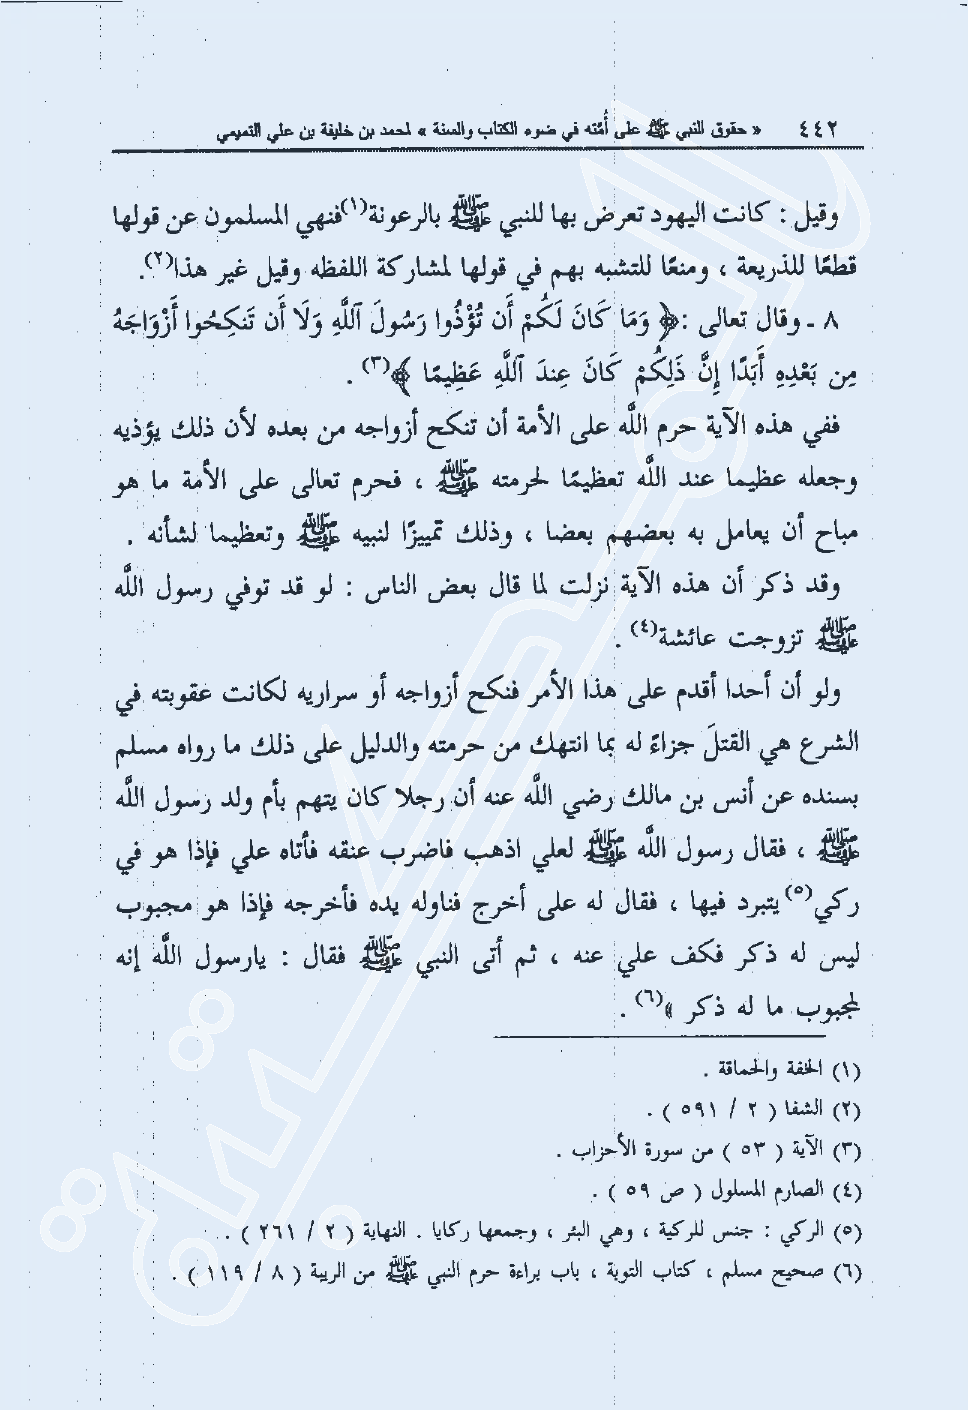 ٤٤٢ « حقوق النبي ﷺ على أمته في ضوء الكتاب والسنة » لمحمد بن خليفة بن علي التميمي
وقيل : كانت اليهود تعرض بها للنبي ﷺ بالرعونة(١) فنهي المسلمون عن قولها
قطعًا للذريعة ، ومنعًا للتشبه بهم في قولها لمشاركة اللفظه وقيل غير هذا(٢).
٨ ـ وقال تعالى : ﴿ وَمَا كَانَ لَكُمْ أَن تُؤْذُوا رَسُولَ ٱللَّهِ وَلَا أَن تَنكِحُوا أَزْوَاجَهُ
مِن بَعْدِهِ أَبَدًا إِنَّ ذَلِكُمْ كَانَ عِندَ ٱللَّهِ عَظِيمًا ﴾(٣) .
ففي هذه الآية حرم اللَّه على الأمة أن تنكح أزواجه من بعده لأن ذلك يؤذيه
وجعله عظيما عند اللَّه تعظيمًا لحرمته ﷺ ، فحرم تعالى على الأمة ما هو
مباح أن يعامل به بعضهم بعضا ، وذلك تمييزًا لنبيه ﷺ وتعظيما لشأنه .
وقد ذكر أن هذه الآية نزلت لما قال بعض الناس : لو قد توفي رسول اللَّه
ﷺ تزوجت عائشة(٤) .
ولو أن أحدا أقدم على هذا الأمر فنكح أزواجه أو سراريه لكانت عقوبته في
الشرع هي القتلَ جزاءً له بما انتهك من حرمته والدليل على ذلك ما رواه مسلم
بسنده عن أنس بن مالك رضي اللَّه عنه أن رجلا كان يتهم بأم ولد رسول اللَّه
ﷺ ، فقال رسول اللَّه ﷺ لعلي اذهب فاضرب عنقه فأتاه علي فإذا هو في
ركي(٥) يتبرد فيها ، فقال له على أخرج فناوله يده فأخرجه فإذا هو مجبوب
ليس له ذكر فكف علي عنه ، ثم أتى النبي ﷺ فقال : يارسول اللَّه إنه
لمجبوب ما له ذكر »(٦) .
(١) الخفة والحماقة .
(٢) الشفا ( ٢ / ٥٩١ ) .
(٣) الآية ( ٥٣ ) من سورة الأحزاب .
(٤) الصارم المسلول ( ص ٥٩ ) .
(٥) الركي : جنس للركية ، وهي البئر ، وجمعها ركايا . النهاية ( ٢ / ٢٦١ ) .
(٦) صحيح مسلم ، كتاب التوبة ، باب براءة حرم النبي ﷺ من الريبة ( ٨ / ١١٩ ) .